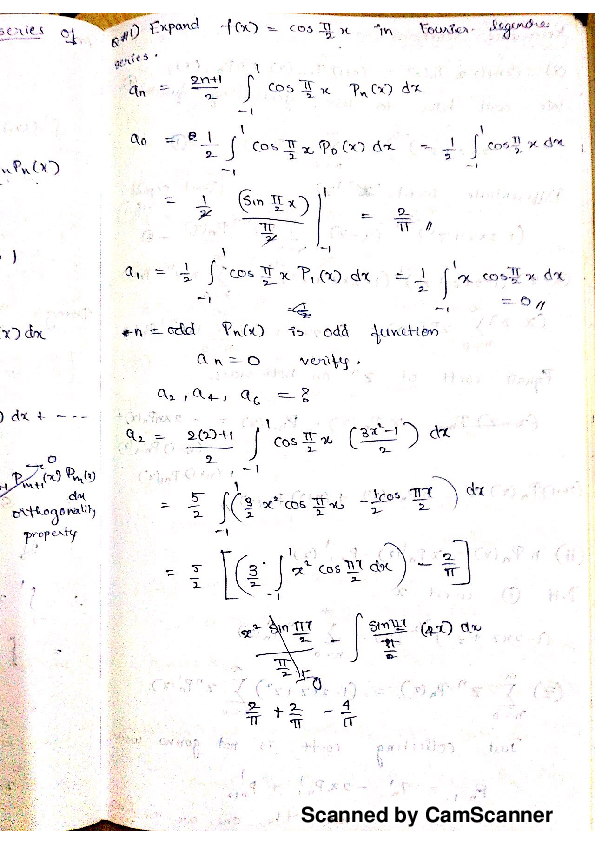 series of
nPn(x)
)
(x) dx
) dx + ---
→ 0
Pm+1(x) Pm(x)
dx
orthogonality
property
Q#1) Expand f(x) = cos π/2 x in Fourier legendre
series.
an = 2n+1/2 ∫_{-1}^{1} cos π/2 x Pn(x) dx
a0 = 1/2 ∫_{-1}^{1} cos π/2 x P0(x) dx = 1/2 ∫_{-1}^{1} cos π/2 x dx
= 1/2 (sin π/2 x)/(π/2) |_{-1}^{1} = 2/π //
a1 = 1/2 ∫_{-1}^{1} cos π/2 x P1(x) dx = 1/2 ∫_{-1}^{1} x cos π/2 x dx
= 0 //
n = odd Pn(x) is odd function
an = 0 verify.
a2, a4, a6 = ?
a2 = 2(2)+1/2 ∫_{-1}^{1} cos π/2 x (3x²-1/2) dx
= 5/2 ∫_{-1}^{1} (3/2 x² cos π/2 x - 1/2 cos πx/2) dx
= 5/2 [(3/2 ∫_{-1}^{1} x² cos πx/2 dx) - 2/π]
x² sin πx/2 / π/2 - ∫ sin πx/2 / π/2 (2x) dx
0
2/π + 2/π - 4/π
Scanned by CamScanner